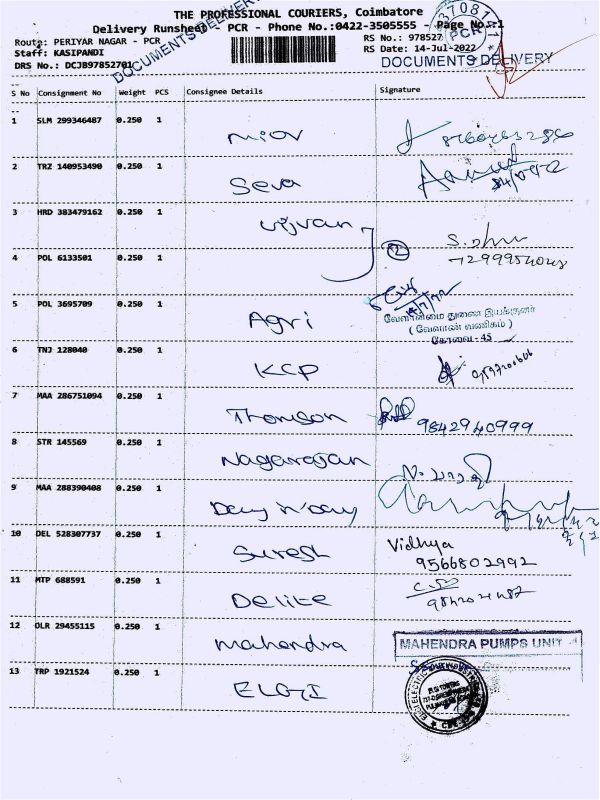 THE PROFESSIONAL COURIERS, Coimbatore
Delivery Runsheet PCR - Phone No.:0422-3505555 - Page No.:1
Route: PERIYAR NAGAR - PCR
RS No.: 978527
Staff: KASIPANDI
RS Date: 14-Jul-2022
DRS No.: DCJB97852701
DOCUMENTS DELIVERY
DOCUMENTS DELIVERY
37081
PCR
S No Consignment No Weight PCS Consignee Details Signature
1 SLM 299346487 0.250 1
2 TRZ 140953490 0.250 1 Seva
3 HRD 383479162 0.250 1 S.
4 POL 6133501 0.250 1
5 POL 3695709 0.250 1 Agri
வேளாண்மை துணை இயக்குனர்
( வேளாண் வணிகம் )
கோவை - 45
6 TNJ 128040 0.250 1 KCP
7 MAA 286751094 0.250 1 Thomson 9842940999
8 STR 145569 0.250 1 Nagarajan
9 MAA 288390408 0.250 1 Day n Day
10 DEL 528307737 0.250 1 Suresh Vidhya
9566802992
11 MTP 688591 0.250 1 Delite
12 DLR 29455115 0.250 1 Mahendra MAHENDRA PUMPS UNIT
13 TRP 1921524 0.250 1 ELGI